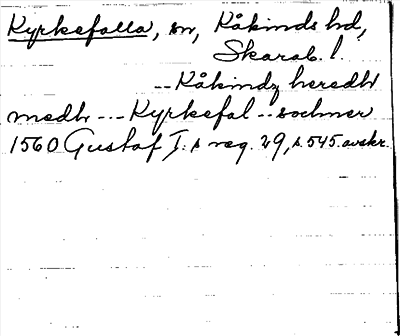 Kyrkefalla, sn, Kåkinds hd,
Skarab. l.
-- Kåkindz heredh
medh --- Kyrkefal -- sochner
1560 Gustaf I:s reg. 29, s. 545. avskr.